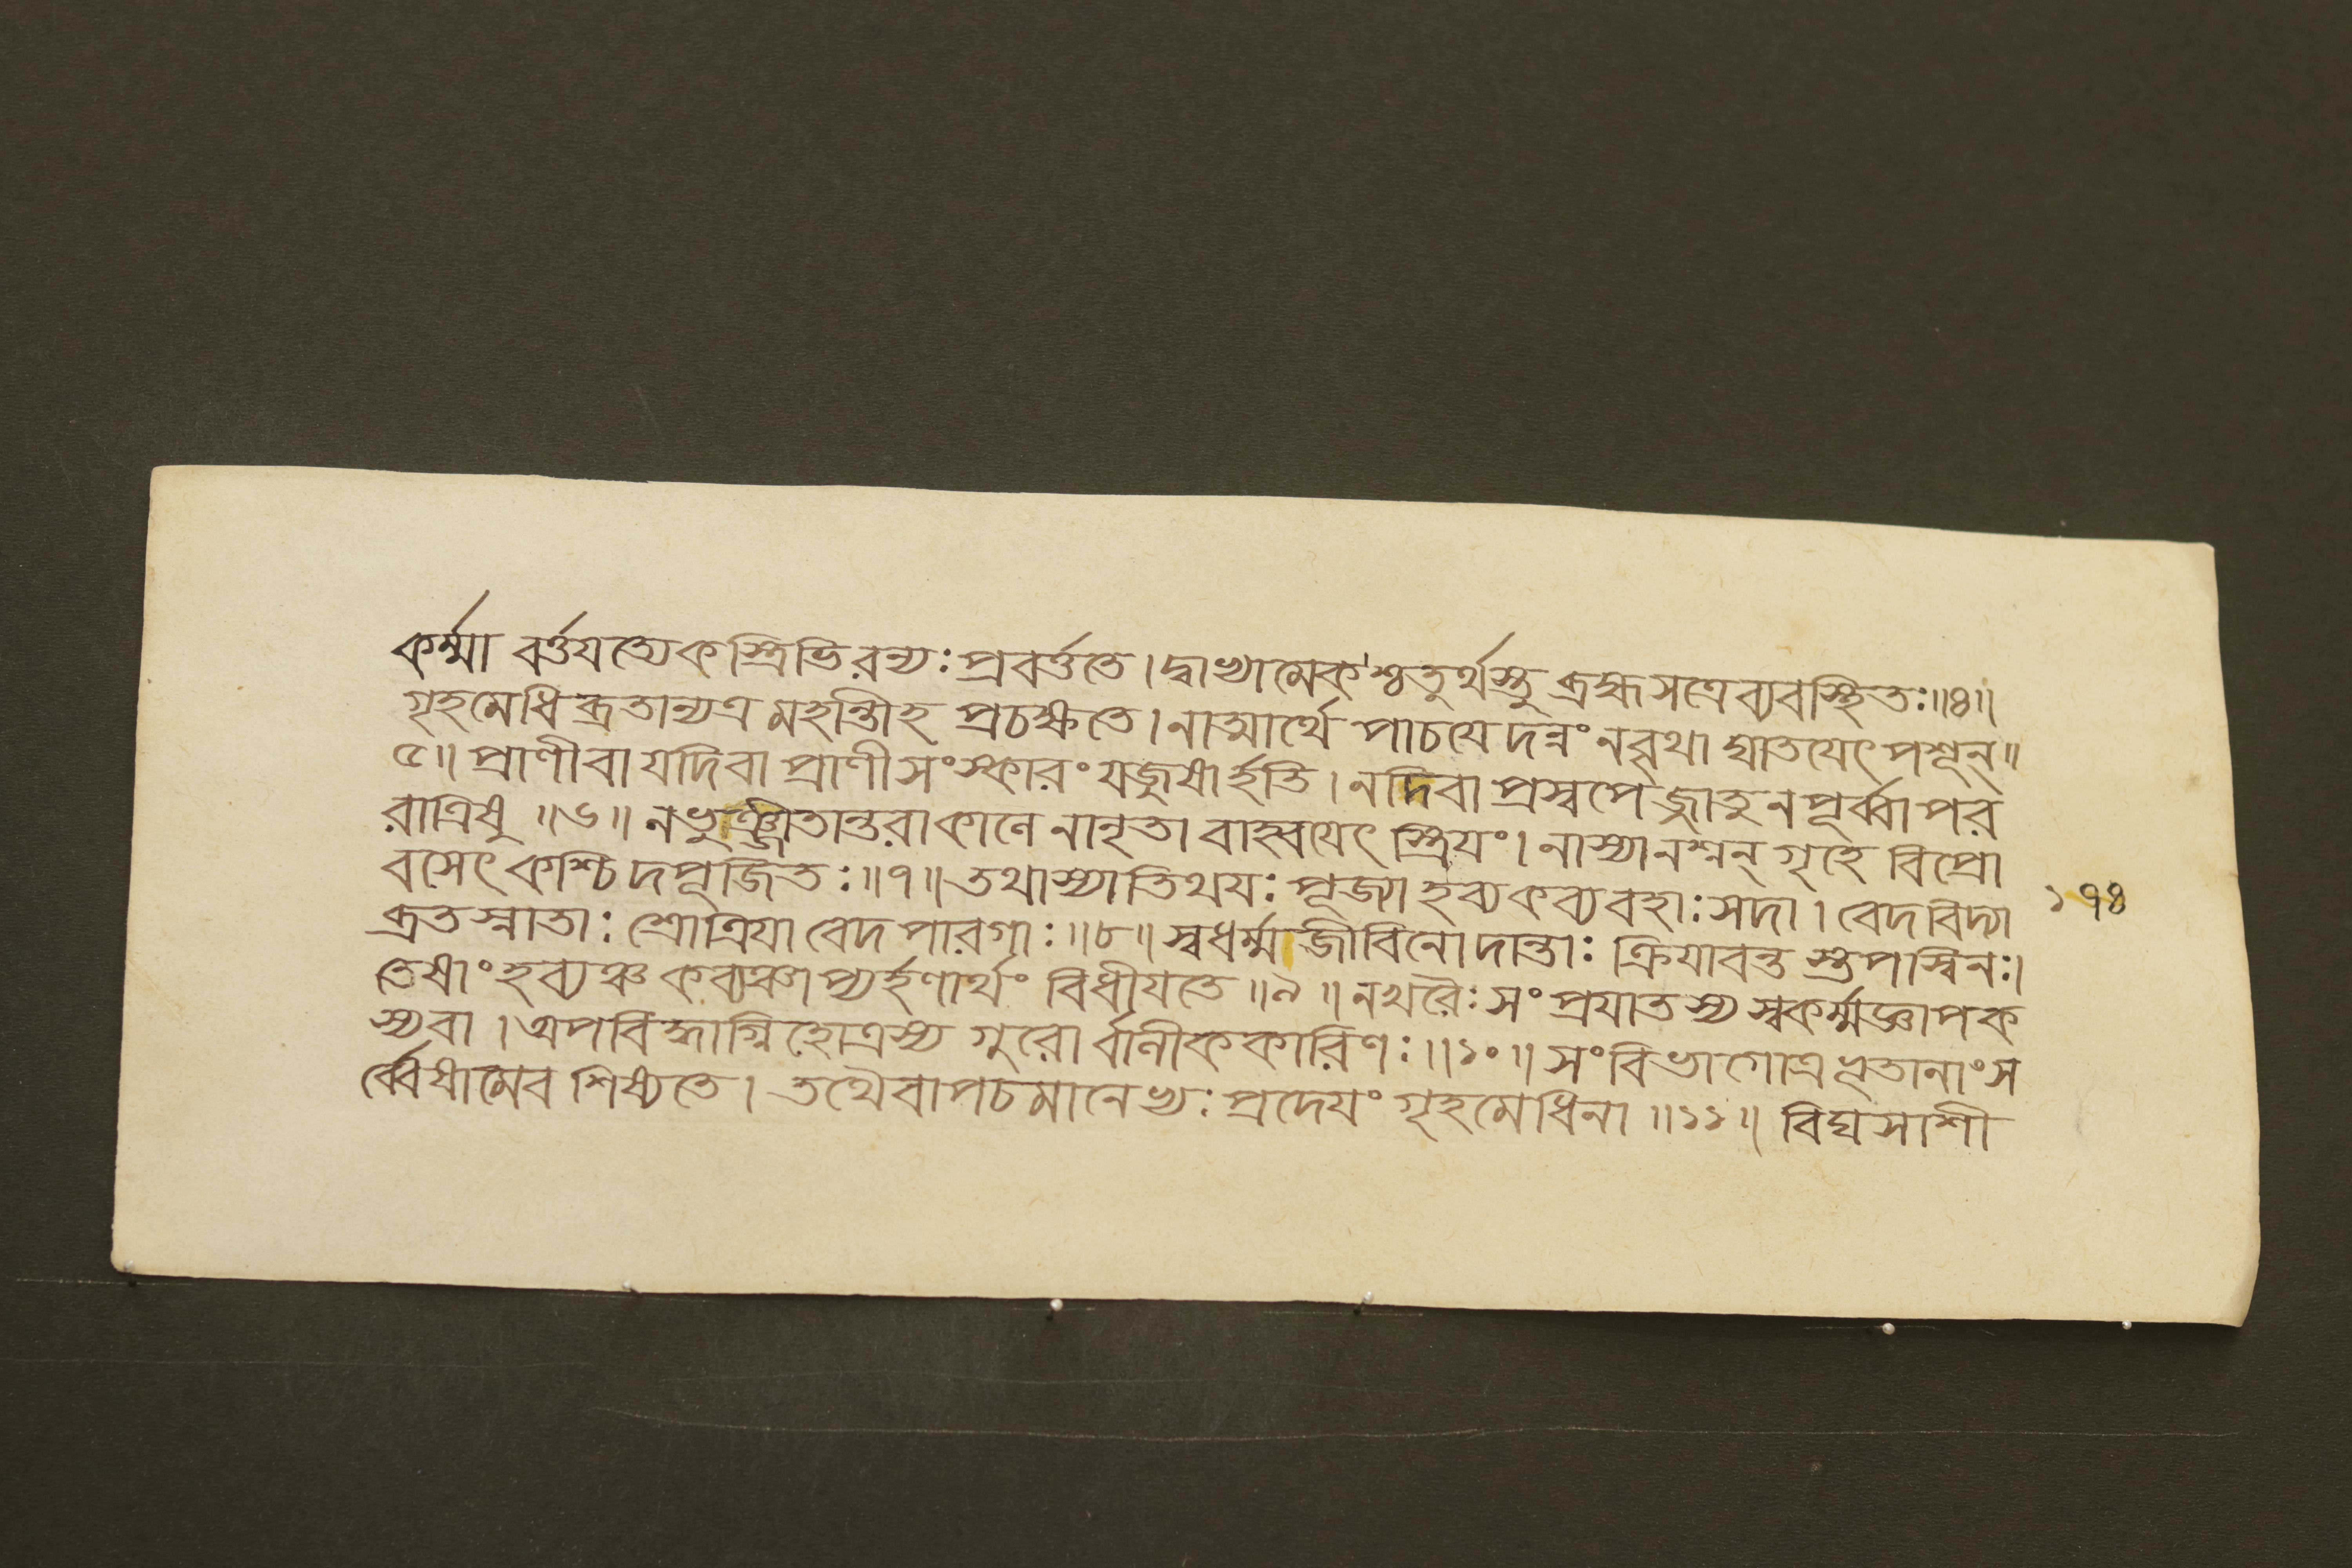 কর্ম্মা বর্ত্তযত্যেকস্ত্রিভিরন্যঃ প্রবর্ত্ততে। দ্বাভ্যামেকশ্চতুর্থস্তু ব্রহ্মসত্রে ব্যবস্থিতঃ॥৪॥
গৃহমেধিব্রতান্যত্র মহান্তীহ প্রচক্ষতে। নাত্মার্থে পাচযেদন্নং নবৃথা ঘাতযেৎ পশূন্॥
৫॥ প্রাণী বা যদিবা প্রাণী সংস্কারং যজুষার্হতি। ন দিবা প্রস্বপেজ্জাতু ন পূর্ব্বাপর
রাত্রিষু ॥৬॥ ন ভুঞ্জীতান্তরাকালে নানৃতা বাহ্বযেৎ স্ত্রিযং। নাস্যানশ্নন্ গৃহে বিপ্রো
বসেৎ কশ্চিদপূজিতঃ॥৭॥ তথাস্যাতিথযঃ পূজ্যা হব্যকব্যবহাঃ সদা। বেদবিদ্যা
ব্রতস্নাতাঃ শ্রোত্রিযা বেদপারগাঃ॥৮॥ স্বধর্ম্মজীবিনো দান্তাঃ ক্রিযাবন্তস্তপস্বিনঃ।
তেষাং হব্যঞ্চ কব্যঞ্চাপ্যর্হণার্থং বিধীযতে॥৯॥ নখরৈঃ সংপ্রযাতস্য স্বকর্ম্মজ্ঞাপক
স্যবা। অপবিদ্ধাগ্নিহোত্রস্য গুরোর্ব্বানীককারিণঃ॥১০॥ সংবিভাগোত্র ভূতানাং স
র্ব্বেষামেব শিষ্যতে। তথৈবাপচমানেভ্যঃ প্রদেযং গৃহমেধিনা॥১১॥ বিঘসাশী
১৭৪